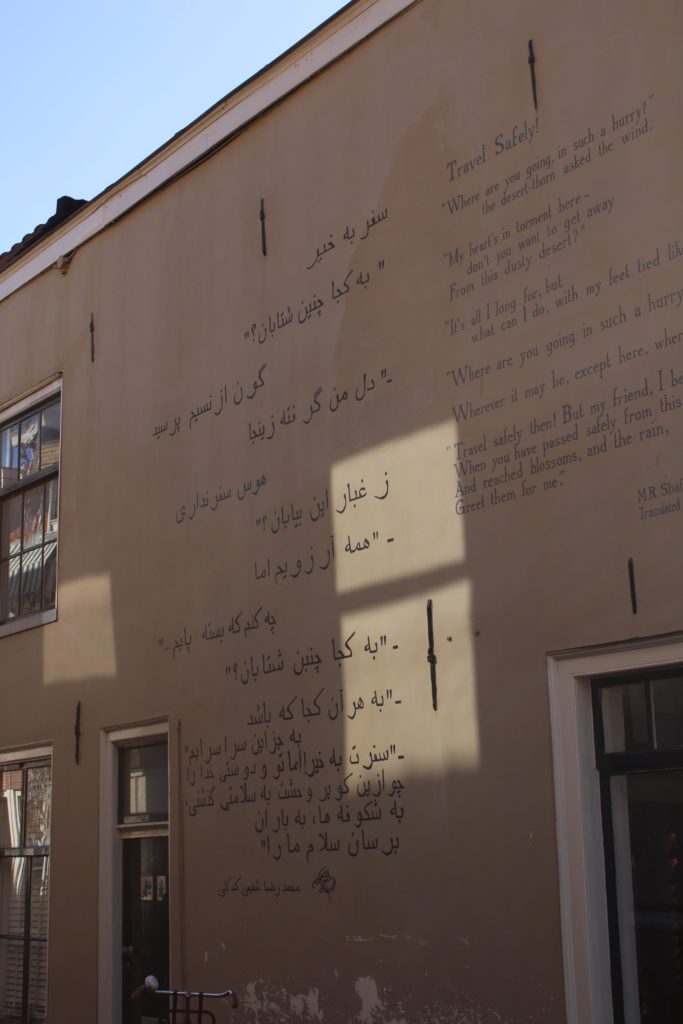 سفر به خیر
" به کجا چنین شتابان؟"
گون از نسیم پرسید
-" دل من گرفته زینجا
هوس سفر نداری
ز غبار این بیابان؟"
- "همه آرزویم اما
چه کنم که بسته پایم..."
-"به کجا چنین شتابان؟"
-"به هر آن کجا که باشد
به جز این سرا سرایم"
-"سفرت به خیر! اما تو و دوستی خدا را
چو ازین کویر وحشت به سلامتی گذشتی،
به شکوفه ها، به باران
برسان سلام ما را"
محمد رضا شفیعی کدکنی
Travel Safely!
"Where are you going, in such a hurry?"
the desert-thorn asked the wind.
"My heart's in torment here -
don't you want to get away
From this dusty desert?"
"It's all I long for, but
what can I do, with my feet tied
"Where are you going in such a hurry
Wherever it may be, except here,
"Travel safely then! But my friend, I
When you have passed safely from this
And reached blossoms, and the rain,
Greet them for me."
M.R.
Translated